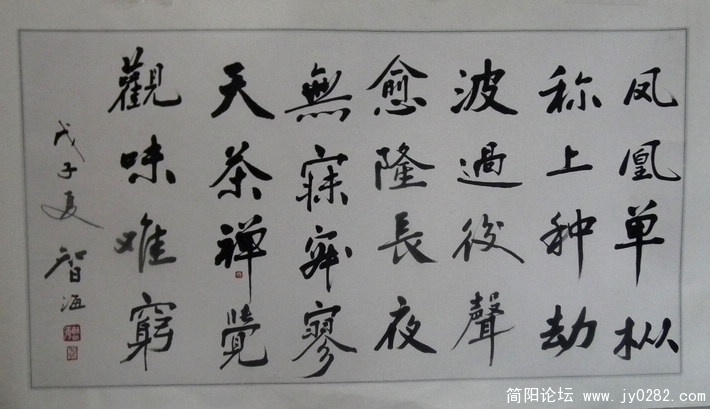 凤凰单枞
称上种劫
波過後聲
愈隆長夜
無寐寂寥
天茶禅覺
觀味难窮
戊子夏 智海
简阳论坛 www.jy0282.com